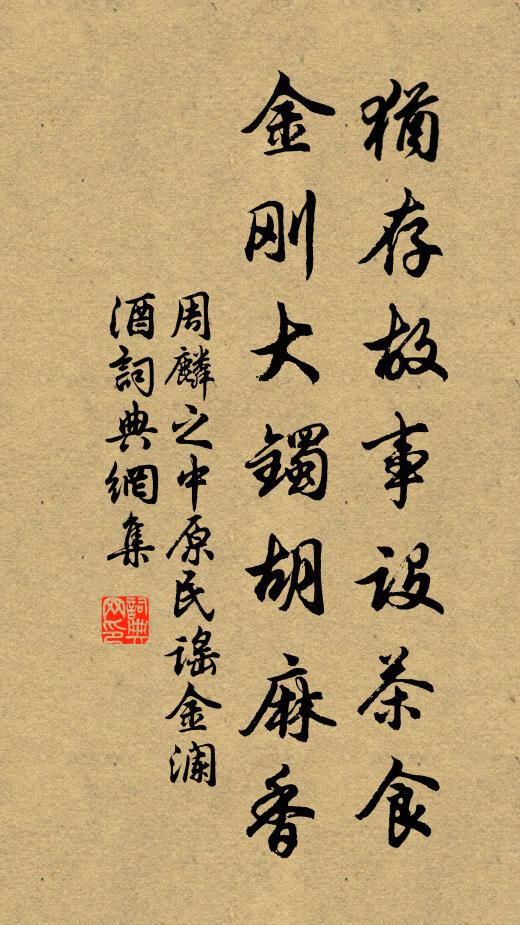 猶存故事設茶食
金刚大鐲胡麻香
周麟之中原民謠金瀾
酒詞典網集
詞典网印